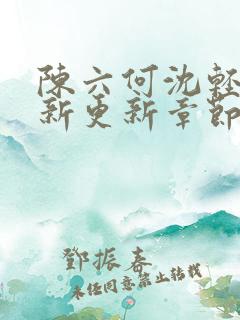 陳六何沈輕
新更新章節
鄧振春
未经同意禁止转载